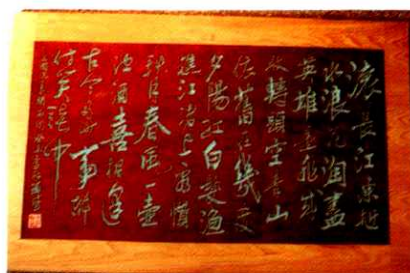 滚滚長江東逝
水浪花淘盡
英雄是非成
敗轉頭空青山
依舊在幾度
夕陽紅白髮漁
樵江渚上慣
秋月春風一壺
濁酒喜相逢
古今多少事都
付笑談中